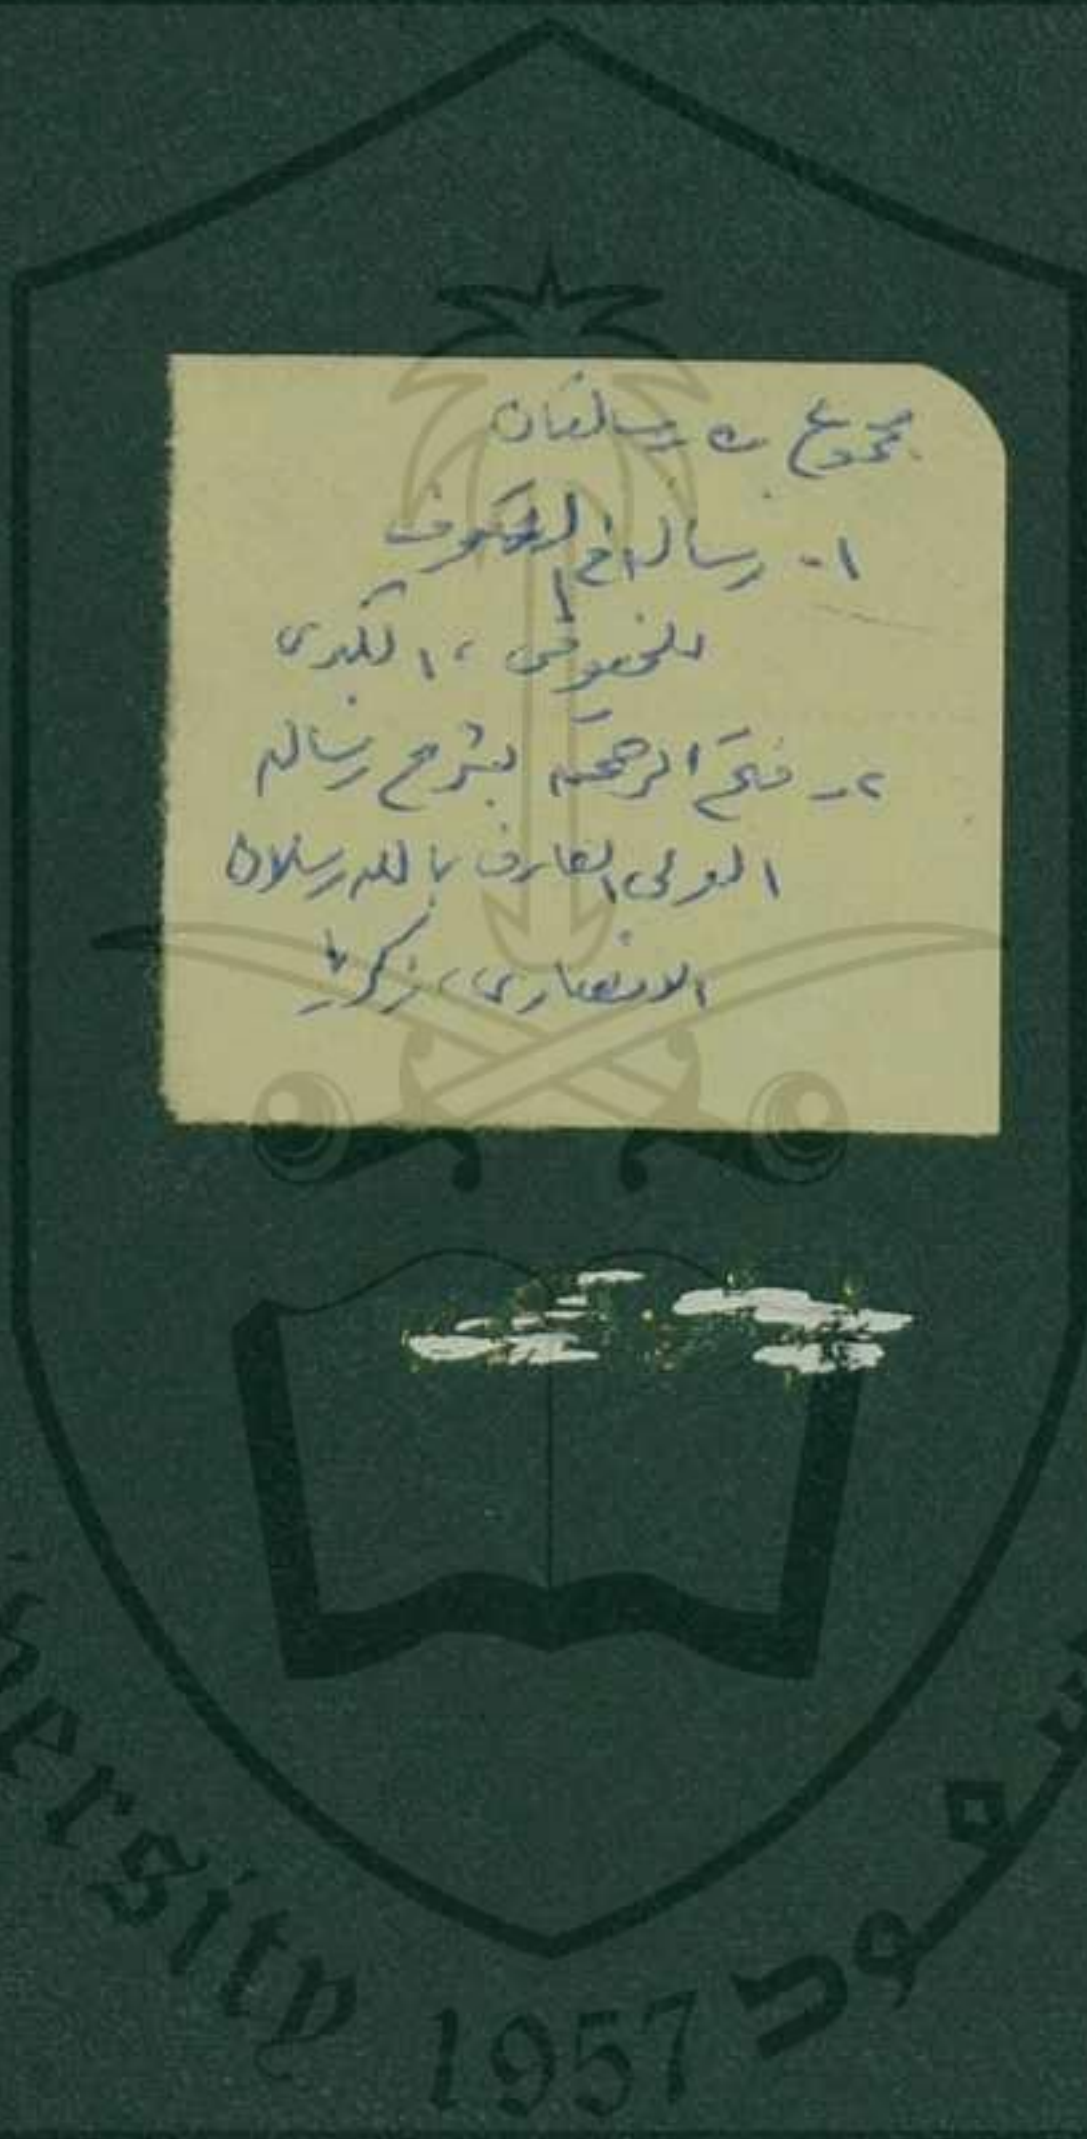 مجموع به رسالتان
١- رسالة في التصوف
، البكري
٢- فتح الرحمن بشرح رسالة
الولي العارف بالله رسلان
الانصاري، زكريا
ersity 1957